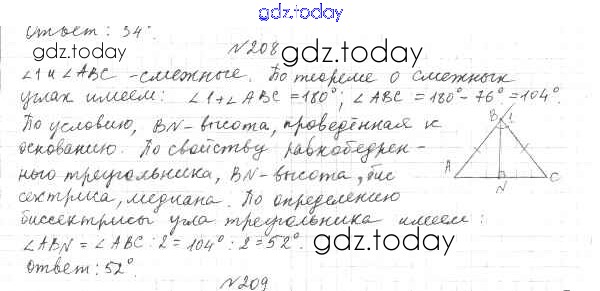 gdz.today
Ответ: 34°.
gdz.today
N208
gdz.today
∠1 и ∠ABC - смежные. По теореме о смежных
углах имеем: ∠1+∠ABC = 180°; ∠ABC = 180° - 76° = 104°.
По условию, BN - высота, проведённая к
основанию. По свойству равнобедрен-
ного треугольника, BN - высота, бис
сектриса, медиана. По определению
биссектрисы угла треугольника имеем:
∠ABN = ∠ABC : 2 = 104° : 2 = 52°.
Ответ: 52°.
B 1
A N C
gdz.today
gdz.today
N209